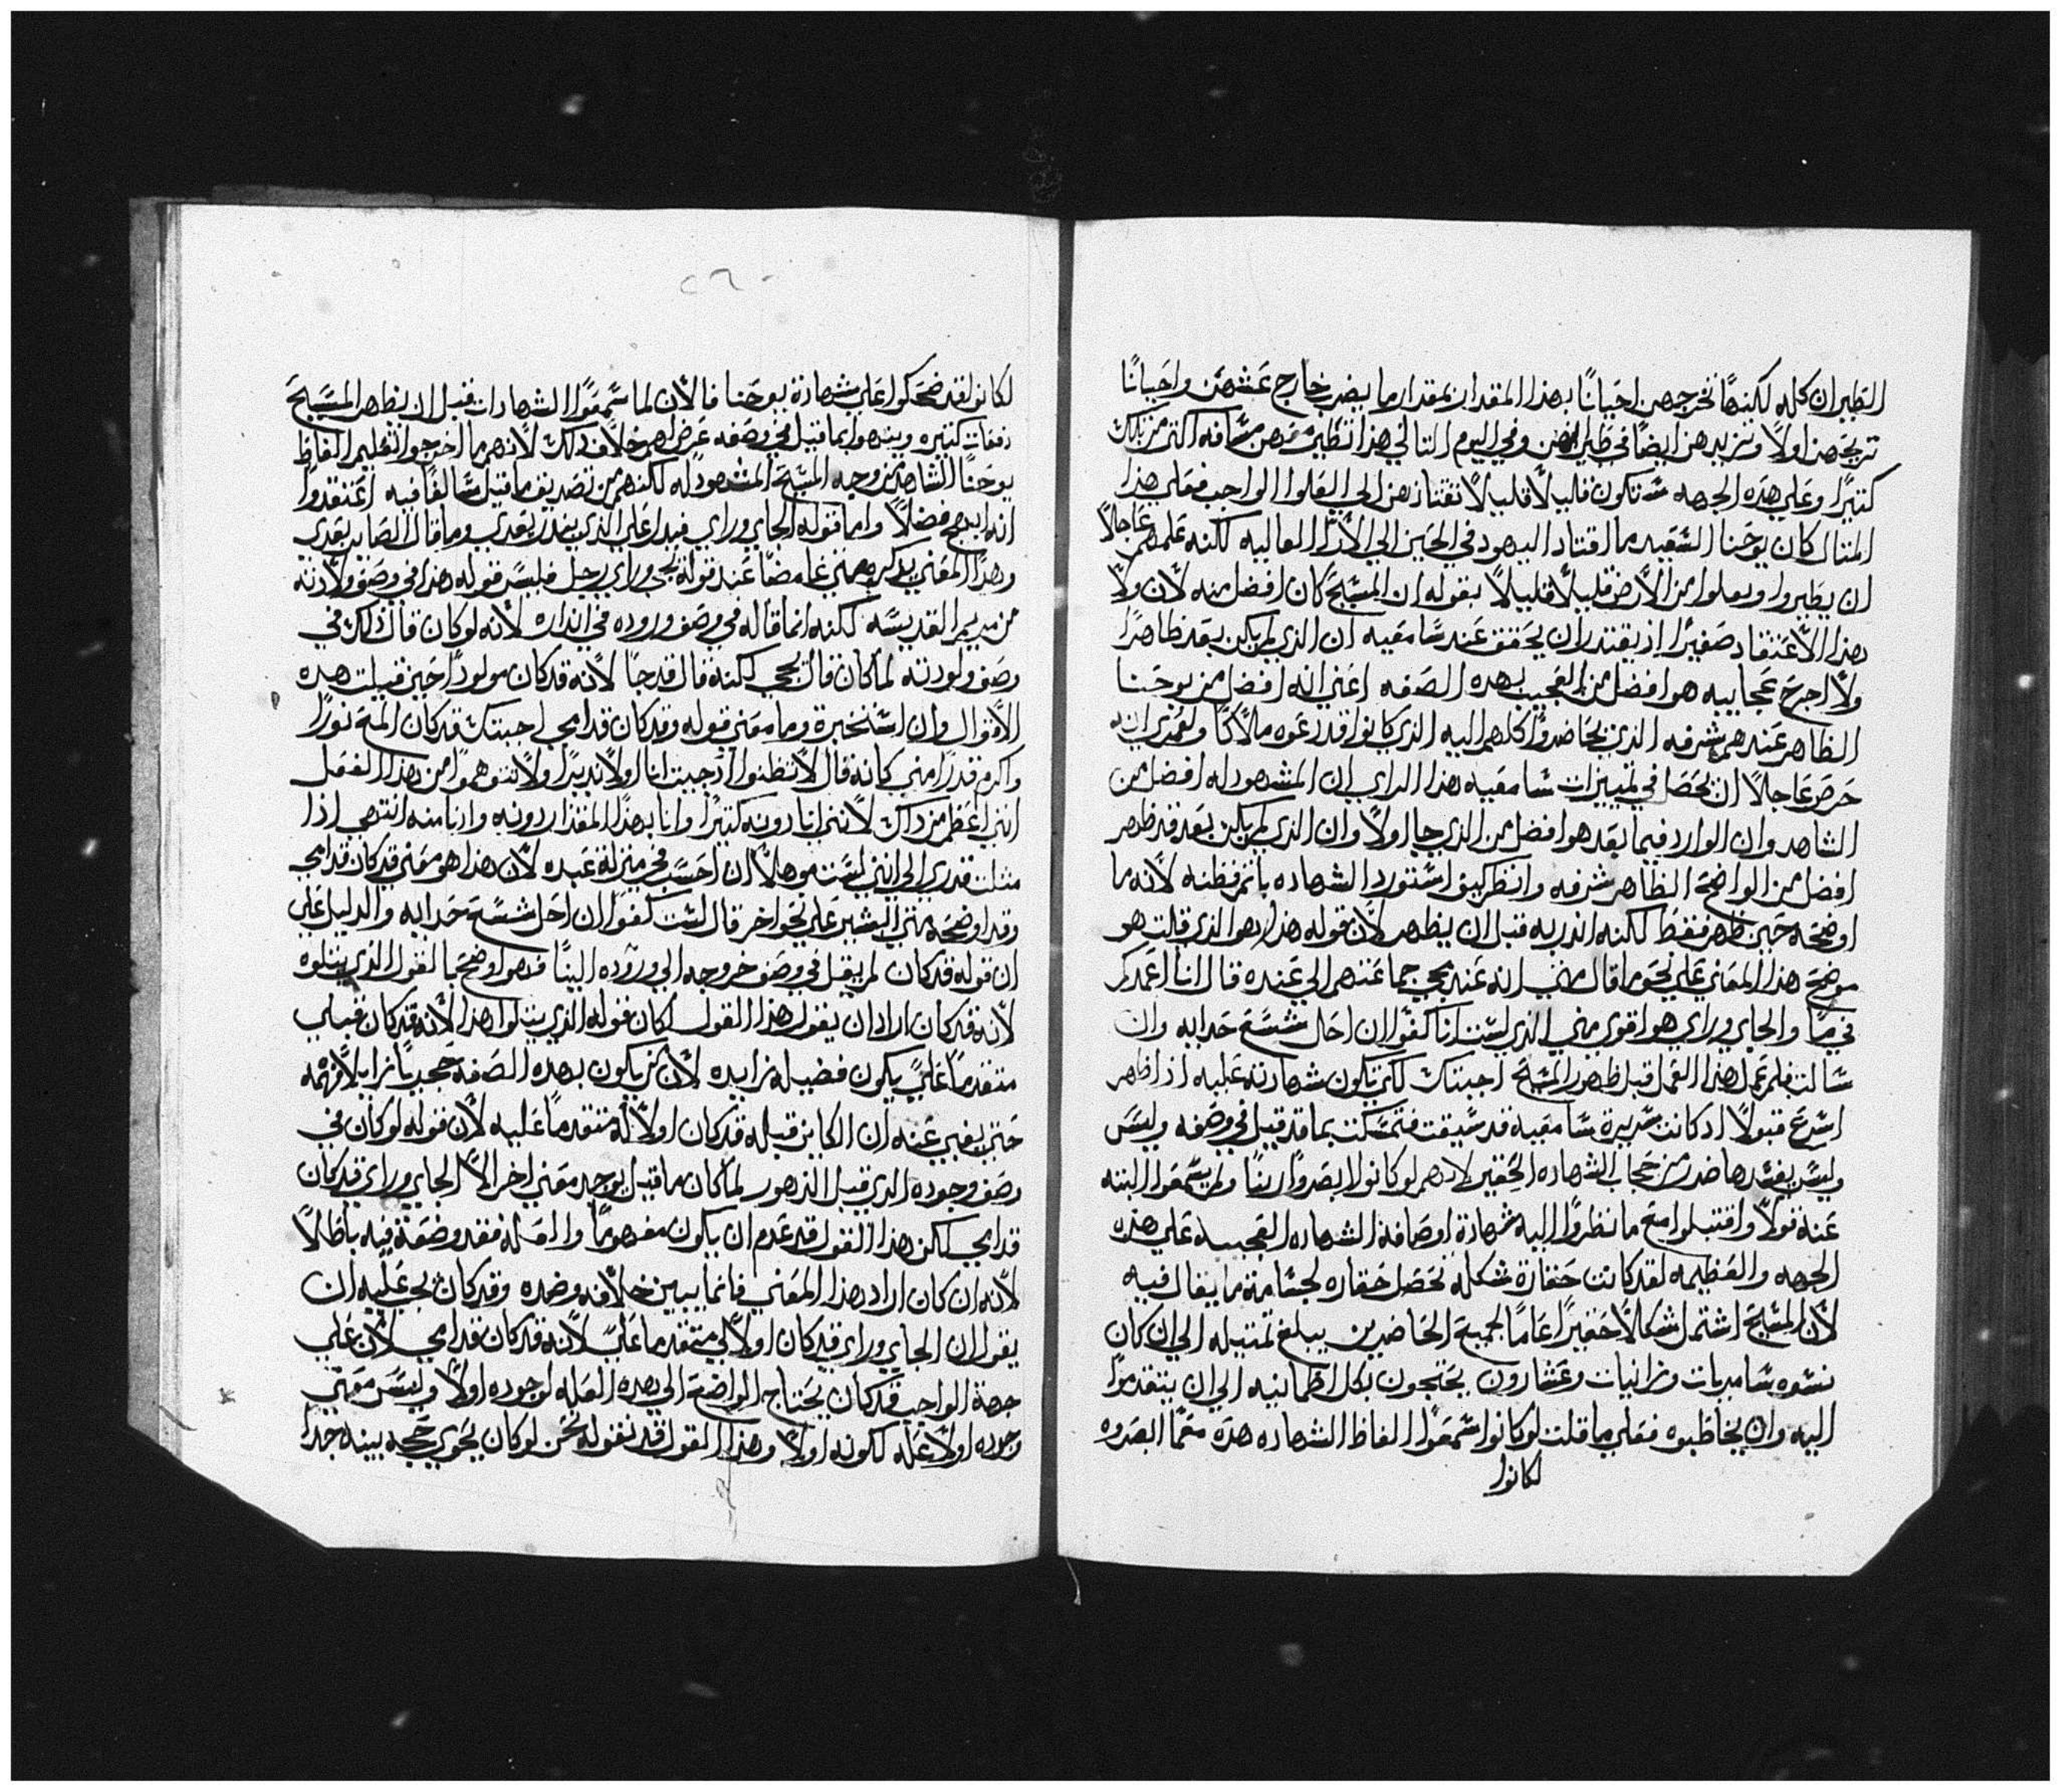 الطيران كله لكنها تخرجهن احيانًا بهذا المقدار بمقدار ما يضرب خارج عشهن واحيانًا
تريحهن اولاً وتزيدهن ايضًا في طيرانهن وفي اليوم التالي هذا تطير معهن مسافه اكثر من تلك
كثيرًا وعلي هذه الجهه تكون قليلاً قليلاً تقتادهن الي العلو الواجب فعلي هذا
المثال كان يوحنا السعيد ما اقتاد اليهود في الحين الي الارا العاليه لكنه علمهم عاجلاً
ان يطيروا ويعلوا من الارض قليلاً قليلاً بقوله ان المسيح كان افضل منه لان ولا
هذا الاعتقاد صغيرًا اذ يقتدر ان يحقق عند سامعيه ان الذي لم يكن بعد ظاهرًا
ولا اجرح عجايبه هو افضل من العجيب بهذه الصفه اعني انه افضل من يوحنا
الظاهر عندهم شرفه الذين حاضروا كلهم اليه الذي كانوا قد دعوه ملاكًا ولعمري انه
حرص عاجلاً ان يحصل في تمييزات سامعيه هذا الراي ان المشهود له افضل من
الشاهد وان الوارد فيما بعد هو افضل من الذي جا اولاً وان الذي لم يكن بعد قد ظهر
افضل من الواضح الظاهر شرفه وانظر كيف استورد الشهاده باتم فطنه لانه ما
اوضحه حين ظهر فقط لكنه انذر به قبل ان يظهر لان قوله هذا هو الذي قلت هو
موضح هذا المعني علي نحو ما قال متي انه عند مجي جماعتهم الي عنده قال انا اعمدكم
في ما والجاي وراي هو اقوي مني الذي لست انا كفوًا ان احل شسع حدايه وان
سالت فلم عمل هذا العمل قبل ظهور المسيح اجبتك لكي تكون شهادته عليه اذا ظهر
اسرع قبولاً اذ كانت سريرة سامعيه قد سبقت فتمسكت بما قد قيل في وصفه وليس
وليس يفسدها ضد من حجاب الشهاده الحقير لانهم لو كانوا لا ابصروا ربنا ولم يسمعوا البته
عنه قولاً واقتبلوا مع ما نظروا اليه شهادة اوصافة الشهاده العجيبه علي هذه
الجهه والعظيمه لقد كانت حقارة شكله تحصل حقاره لجسامة ما يقال فيه
لان المسيح اشتمل شكالاً حقيرًا عامًا لجميع الحاضرين يبلغ تمثيله الي ان كان
نسوه سامريات وزانيات وعشارون يحتجون بكل اطمانيه الي ان يتقدموا
اليه وان يخاطبوه فعلي ما قلت لو كانوا سمعوا الفاظ الشهاده هذه معما ابصروه
لكانوا
٢٦٠
لكانوا لقد ضحكوا علي شهادة يوحنا فالان لما سمعوا الشهادات قبل ان يظهر المسيح
دفعات كثيره وتنبهوا بما قيل في وصفه عرض لهم خلاف ذلك لانهم ما اخرجوا تعليم الفاظ
يوحنا الشاهد من وجيه المسيح المشهود له لكنهم من تصديق ما قيل سالفًا فيه اعتقدوا
انه ابهج فضلاً واما قوله الجاي وراي فيدل علي الذي ينذر بعدي وما قال الصاير بعدي
وهذا المعني يذكره متي غامضًا عند قوله يجي وراي رجل فليس قوله هذا في وصف ولادته
من مريم القديسه لكنه انما قاله في وصف وروده في انذاره لانه لو كان قال ذلك في
وصف ولودته لما كان قال يجي لكنه قال قد جا لانه قد كان مولودًا حين قيلت هذه
الاقوال وان استخبرة وما معني قوله وقد كان قدامي اجبتك قد كان المع نورًا
واكرم قدرًا مني كانه قال لا تظنوا اذ جيت انا اولاً نديرًا ولا تتوهموا من هذا الفعل
انني اعظم من ذاك لانني انا دونه كثيرًا وانا بهذا المقدار دونه وانا منه انتهي اذا
مثلت قدري الي انني لست موهلاً ان احسب في منزلة عبده لان هذا هو معني قد كان قدامي
وقد اوضحه متي البشير علي نحو اخر قال لست كفوًا ان احل شسع حدايه والدليل علي
ان قوله قد كان لم يقل في وصف خروجه الي وروده الينا فهو اوضحها القول الذي يتلوه
لانه قد كان اراد ان يقول هذا القول لكان قوله الذي يتلوا هذا لانه قد كان قبلي
متقدمًا علي يكون فضيله زايده لان من يكون بهذه الصفه
حتي يغبي عنه ان الكاين قبله قد كان اولاً له متقدمًا عليه لان قوله لو كان في
وصف وجوده الذي قبل الدهور لما كان ما قيل يوجد معني اخر الا الجاي وراي قد كان
قدامي لكن هذا القول قد عدم ان يكون مفهومًا والعله فقد وضعة فيه باطلاً
لانه ان كان اراد هذا المعني فانما يبين خلافه وضده وقد كان يجب عليه ان
يقول ان الجاي وراي قد كان اولاً لي متقدمًا علي لانه قد كان قدامي لان علي
جهة الواجب قد كان يحتاج الواضع الي هذه العله لوجوده اولاً وليس معني
وجوده اولاً عله لكونه اولاً وهذا القول قد نقوله نحن لو كان يحوي حجه بينه جدًا